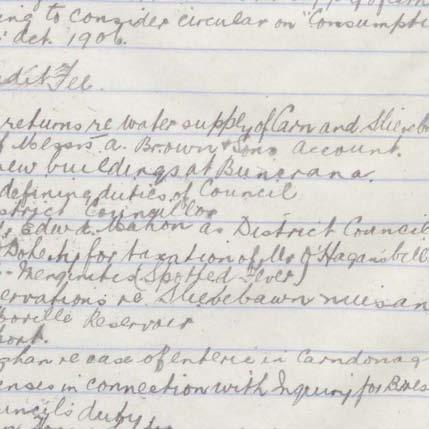 ing to consider circular on "Consumpti
" Act. 1906.
dit Fee.
returns re water supply of Carn and Slieveb
f Messrs A. Brown & Sons account.
new buildings at Buncrana.
defining duties of Council
strict Councillor
Edwd. Mahon as District Council
Doherty for taxation of Mr O'Hagans bill
Meginites (Spotted Fever)
ervations re Slievebawn nuisan
oville Reservoir
port.
ghan re case of enteric in Carndonag
enses in connection with Inquiry for Bores
uncil's duty